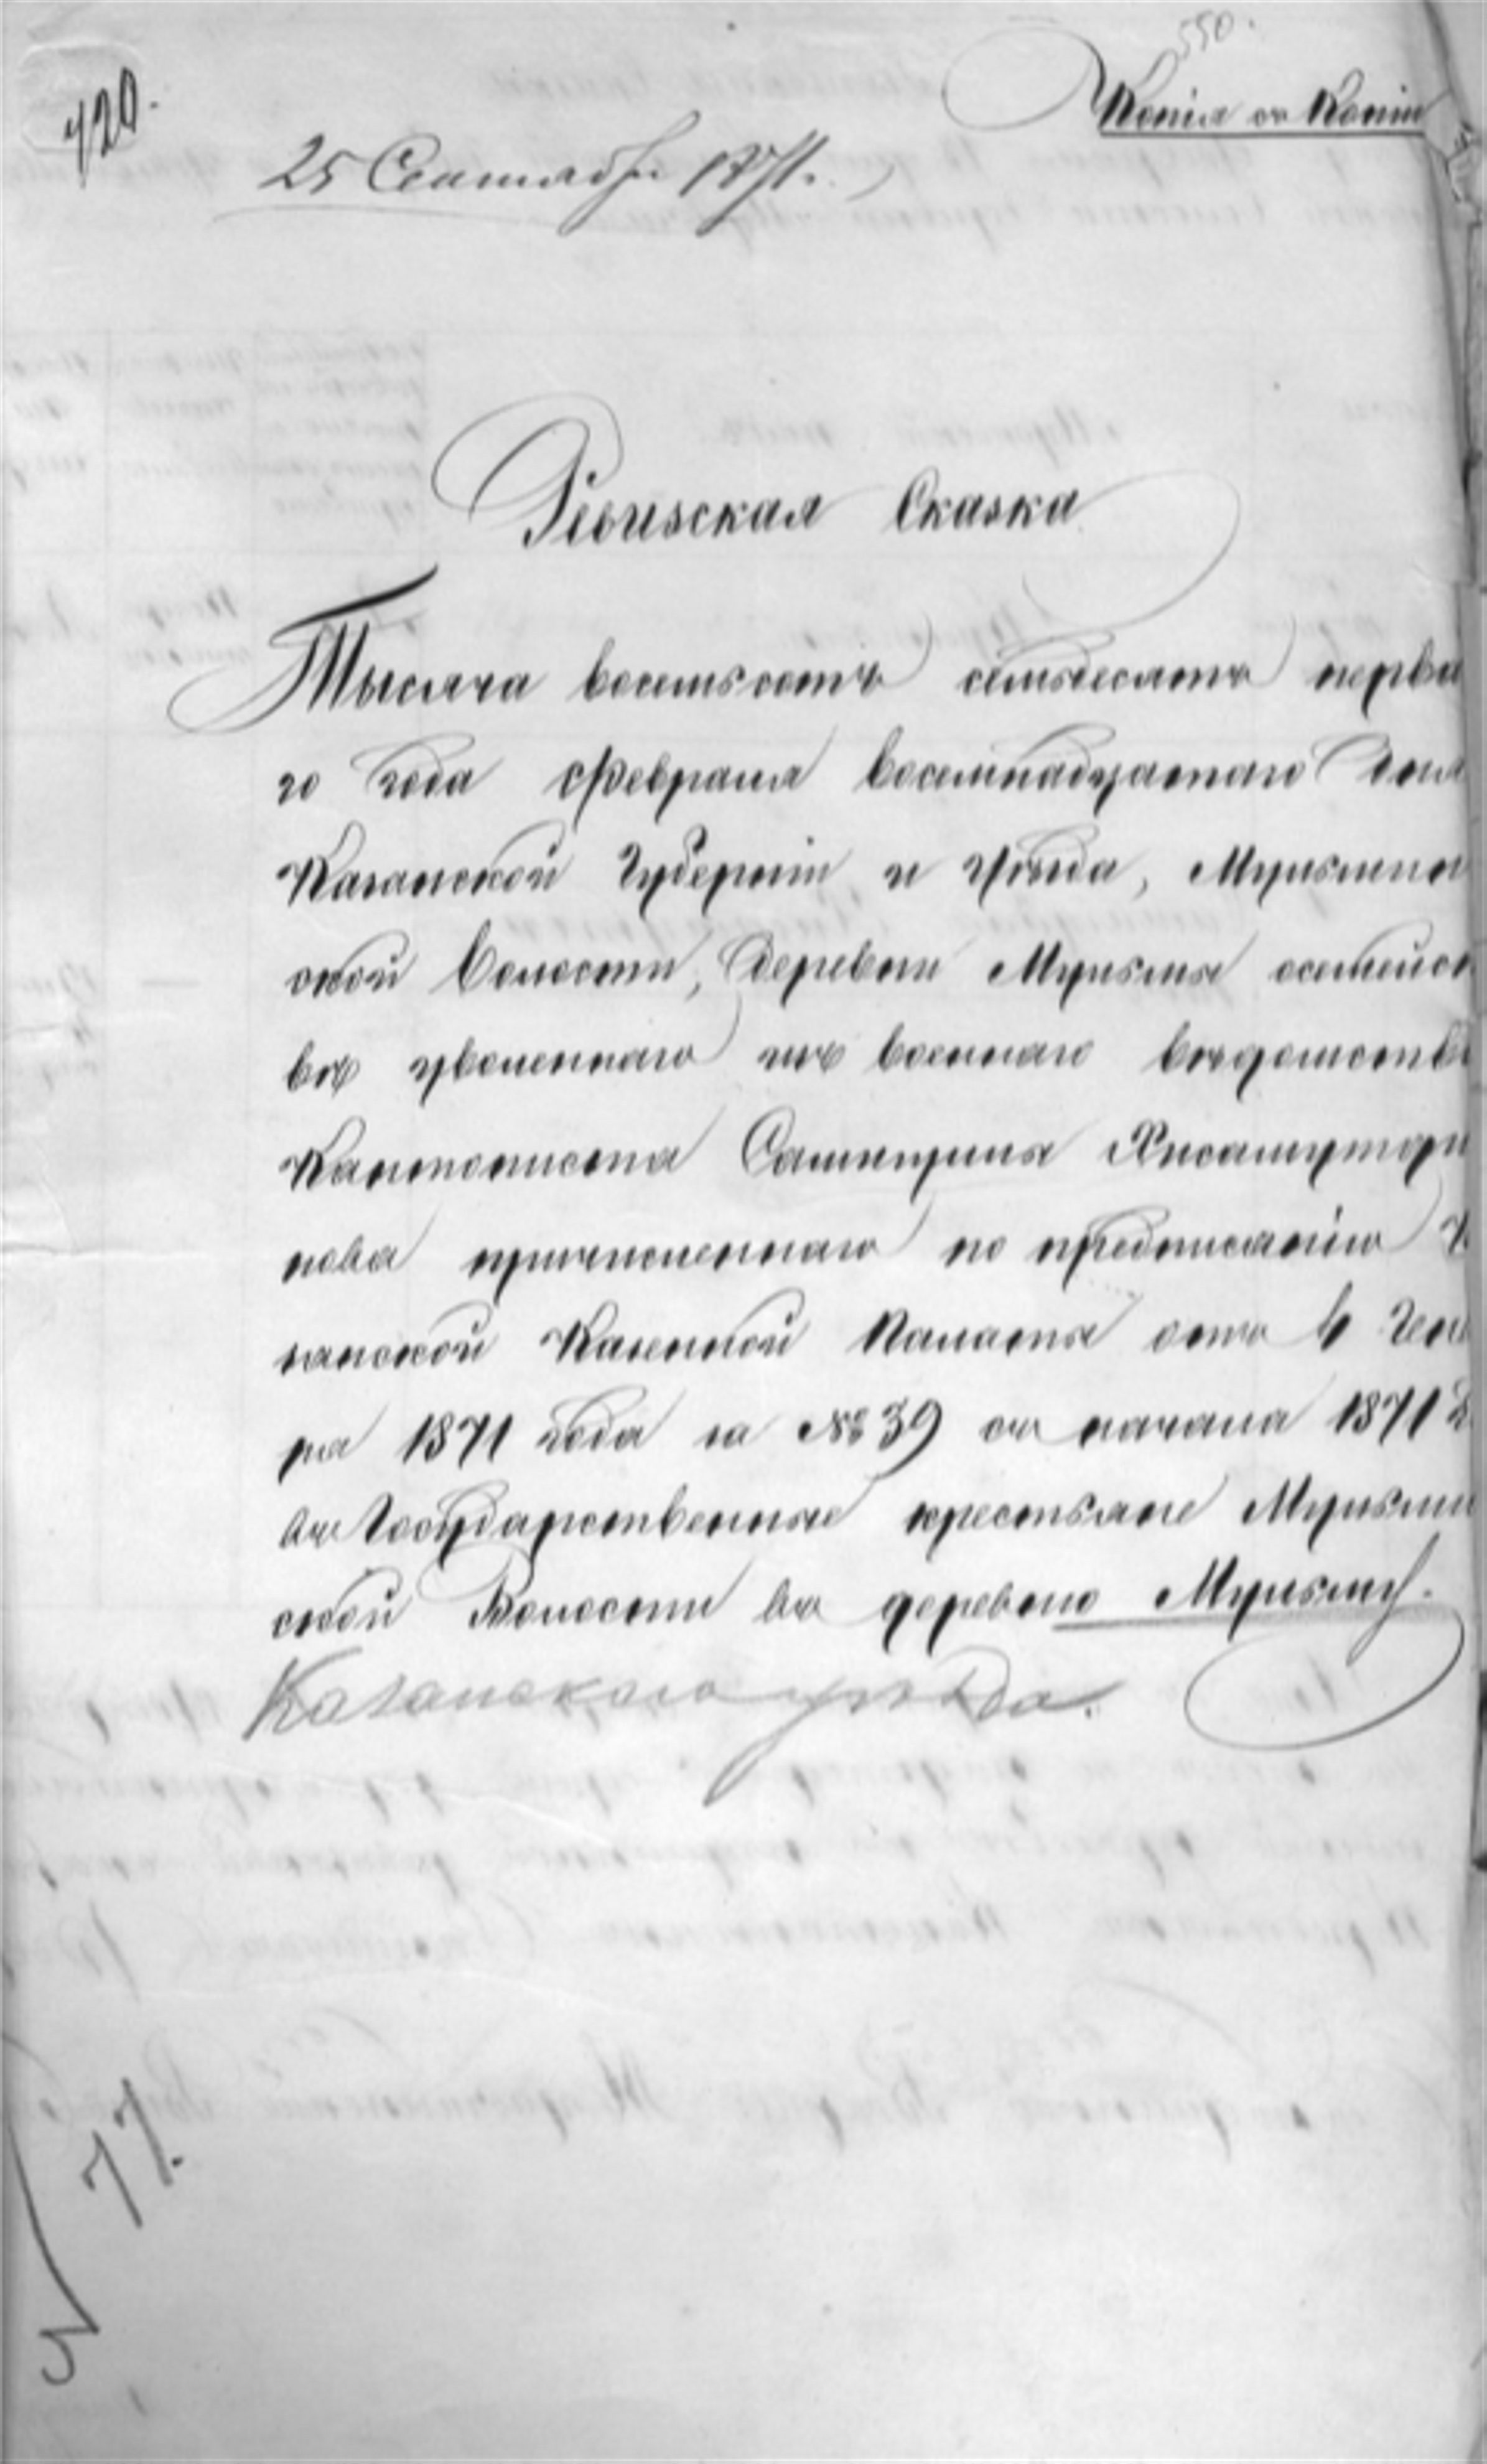 550.
420.
Копія съ Копіи
25 Сентября 1871.
Ревизская Сказка
Тысяча восемьсотъ семьдесятъ перва
го года февраля восемнадцатаго дня
Казанской Губерніи и Уѣзда, Мульмин
ской Волости, деревни Мульмы о семейст
вѣ уволеннаго изъ военнаго вѣдомства
Кантониста
нова причисленнаго по предписанію Ка
занской Казенной Палаты отъ Генва
ря 1871 года за № 39 съ начала 1871 г
въ Государственные крестьяне Мульмин
ской Волости въ деревню Мульму.
Казанскаго уѣзда.
77.